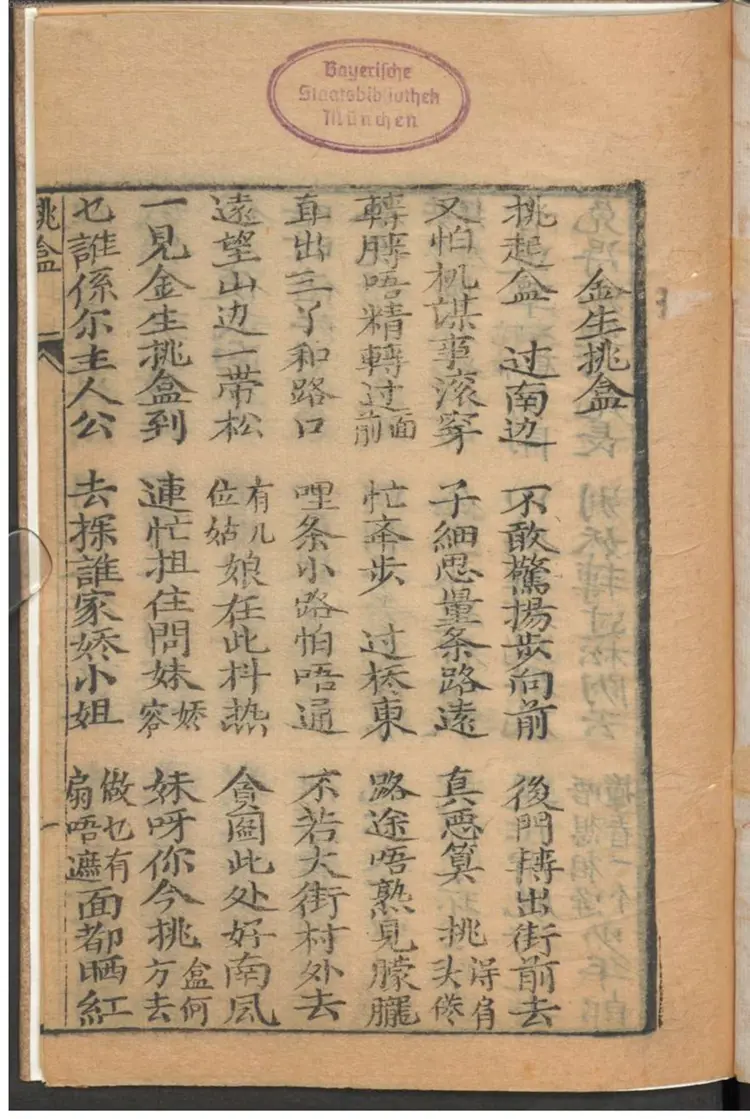 Bayerische
Staatsbibliothek
München
金生挑盒
挑起盒 过南边 不敢驚揚步向前 後門轉出街前去
又怕机謀事滚穿 子細思量条路遠 真惡算 挑得肩头倦
轉膊唔精轉过面前 忙奔步 过桥東 路途唔熟見朦朧
直出三丫和路口 哩条小路怕唔通 不若大街村外去
遠望山边一帶松 有几位姑娘在此抖热 貪圖此处好南風
一見金生挑盒到 連忙扯住問妹娇容 妹呀你今挑盒何方去
乜誰係尔主人公 去探誰家娇小姐 做乜有扇唔遮面都晒紅
挑盒 一